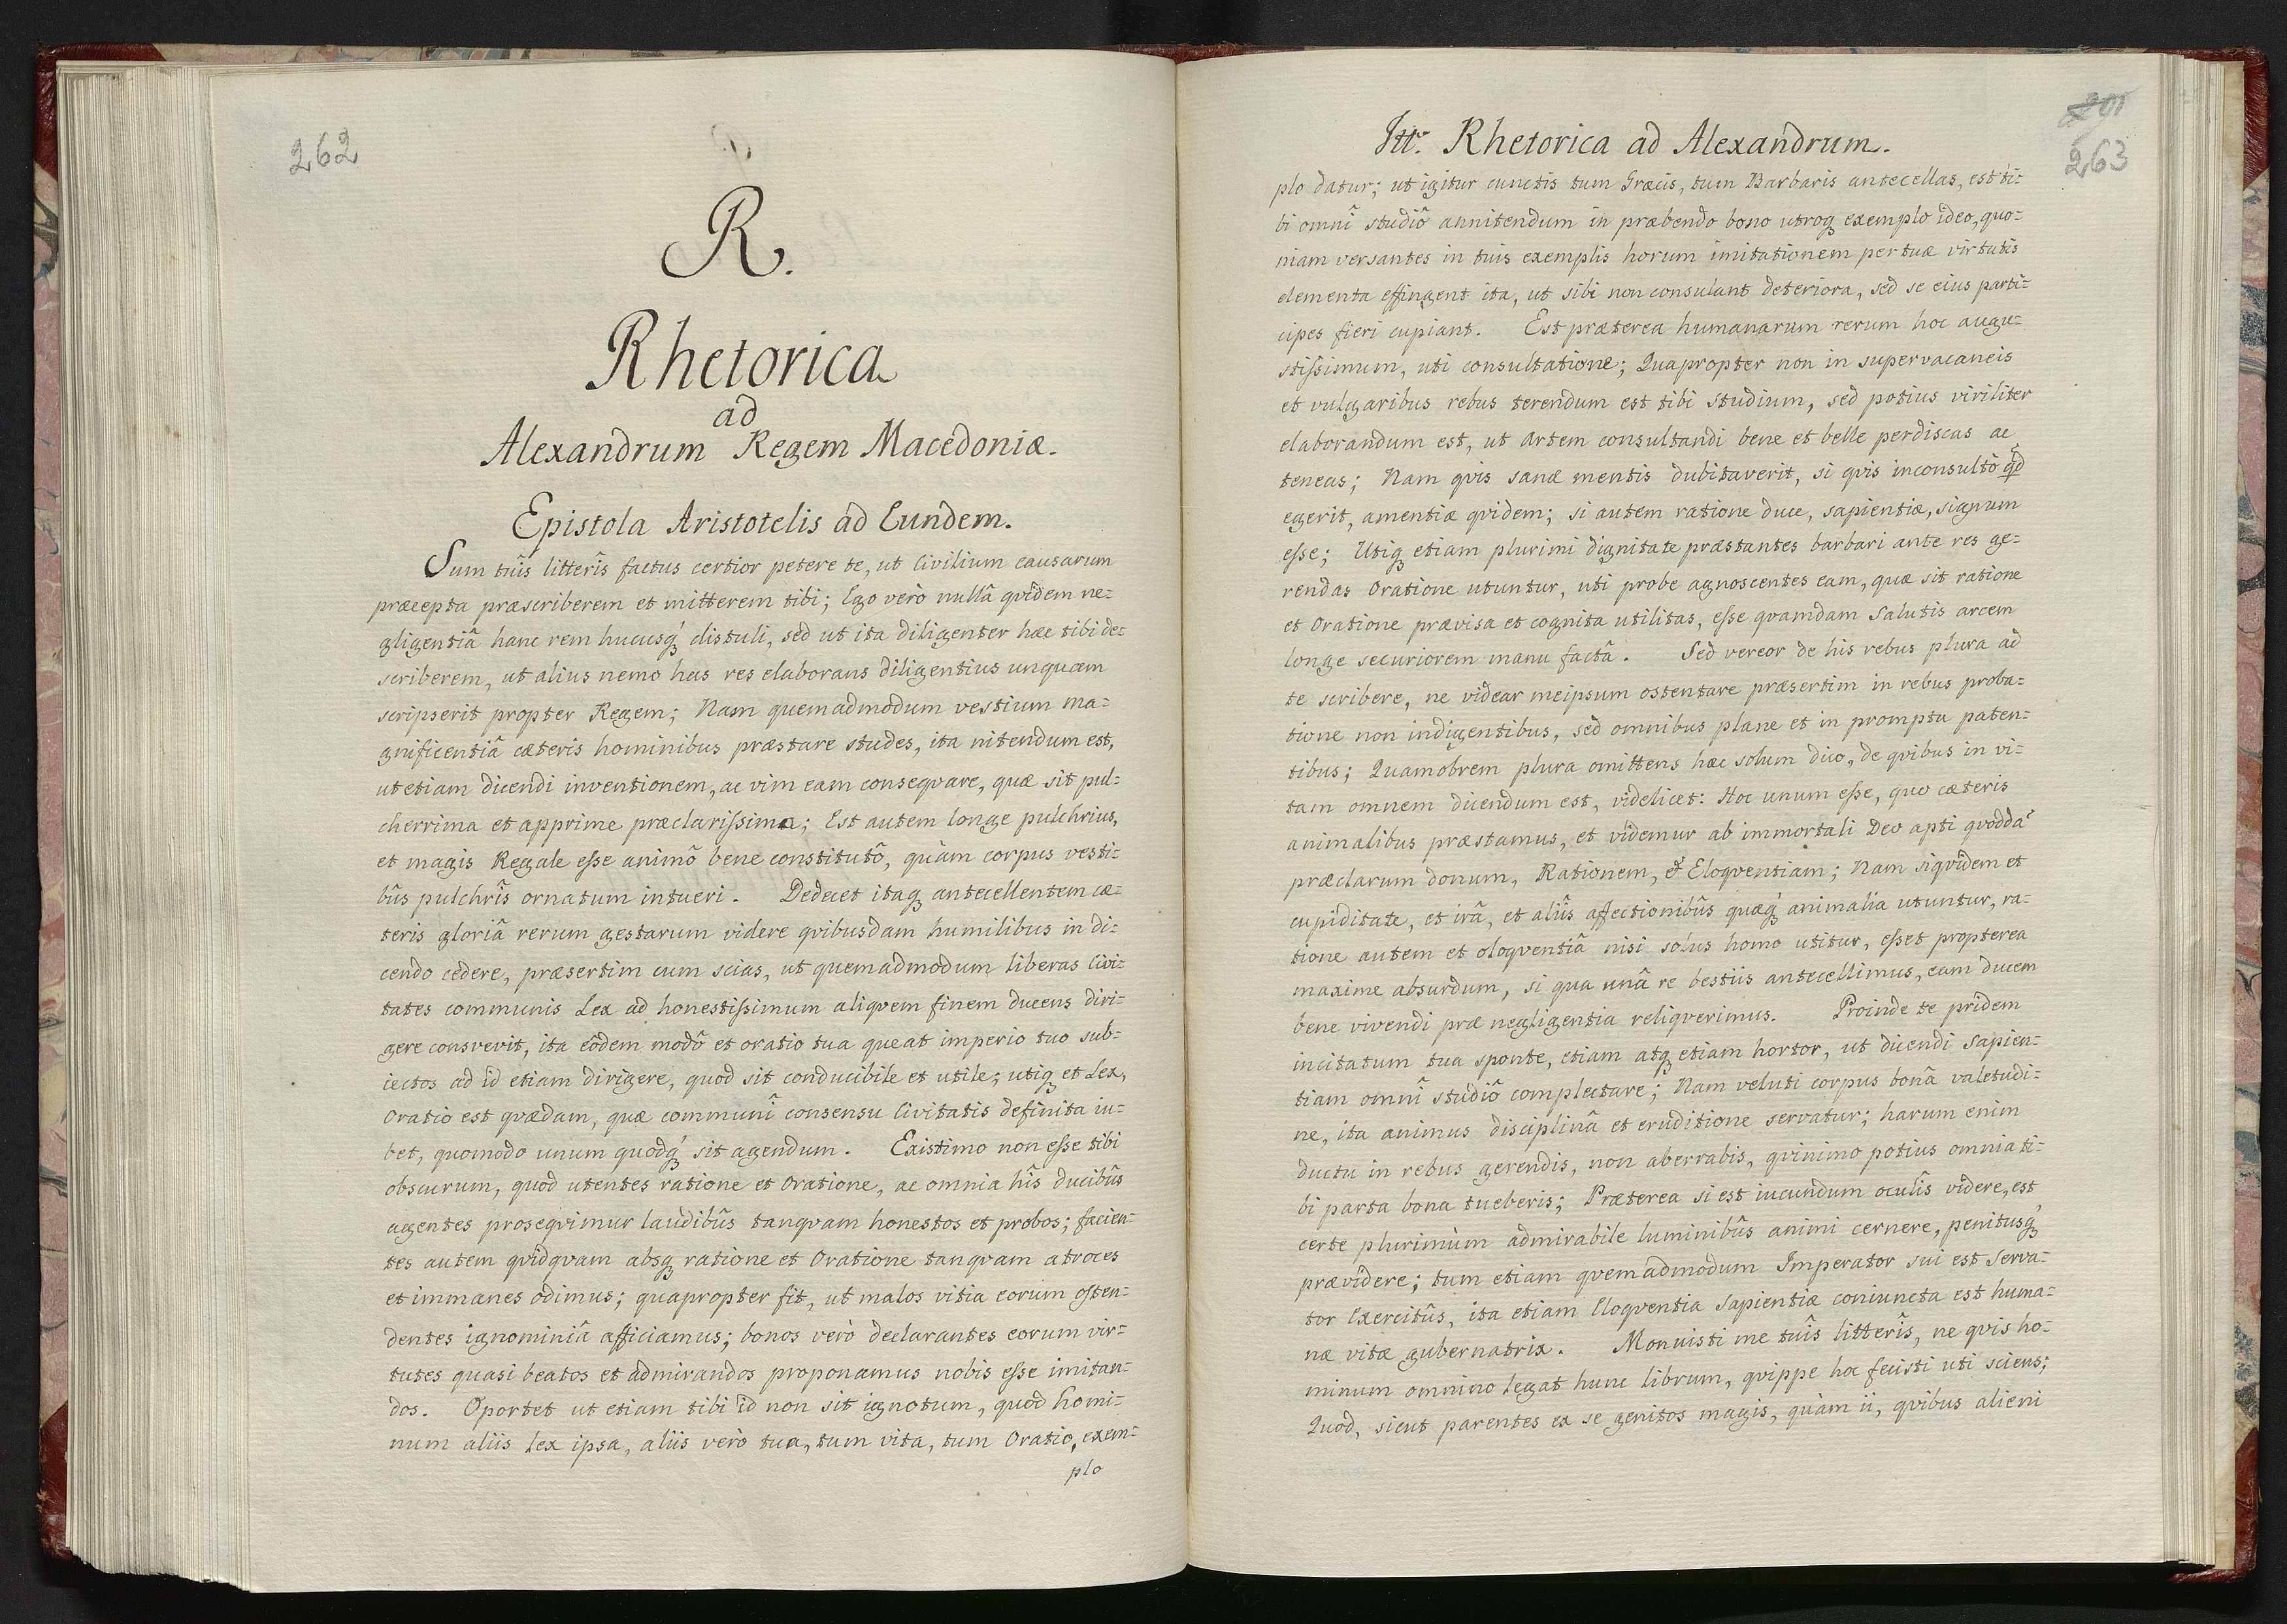 262
R.
Rhetorica
ad
Alexandrum Regem Macedoniæ.
Epistola Aristotelis ad Eundem.
Sum tuîs litterîs factus certior petere te, ut Civilium causarum
præcepta præscriberem et mitterem tibi; Ego verò nullâ qvidem ne=
gligentiâ hanc rem hucusq́ꝫ distuli, sed ut ita diligenter hæc tibi de=
scriberem, ut alius nemo has res elaborans diligentius unquam
scripserit propter Regem; Nam quemadmodum vestium ma=
gnificentiâ cæteris hominibus præstare studes, ita nitendum est,
ut etiam dicendi inventionem, ac vim eam conseqvare, quæ sit pul=
cherrima et apprime præclarissima; Est autem longe pulchrius,
et magis Regale esse animô bene constitutô, quàm corpus vesti=
bûs pulchrîs ornatum intueri. Dedecet itaqꝫ antecellentem cæ=
teris gloriâ rerum gestarum videre qvibusdam humilibus in di=
cendo cedere, præsertim cum scias, ut quemadmodum liberas Civi=
tates communis Lex ad honestissimum aliqvem finem ducens diri=
gere consvevit, ita eôdem modô et oratio tua queat imperio tuo sub=
iectos ad id etiam dirigere, quod sit conducibile et utile; utiqꝫ et Lex,
Oratio est qvædam, quæ communî consensu Civitatis definita iu=
bet, quomodo unum quodq́ꝫ sit agendum. Existimo non esse tibi
obscurum, quod utentes ratione et Oratione, ac omnia hîs ducibûs
agentes proseqvimur laudibûs tanqvam honestos et probos; facien=
tes autem qvidqvam absqꝫ ratione et Oratione tanqvam atroces
et immanes odimus; quapropter fit, ut malos vitia eorum osten=
dentes ignominiâ afficiamus; bonos verò declarantes eorum vir=
tutes quasi beatos et admirandos proponamus nobis esse imitan=
dos. Oportet ut etiam tibi id non sit ignotum, quod homi=
num aliis Lex ipsa, aliis verò tua, tum vita, tum Oratio, exem=
plo
263
Rhetorica ad Alexandrum.
plo datur; ut igitur cunctis tum Græcis, tum Barbaris antecellas, est ti=
bi omnî studiô annitendum in præbendo bono utroqꝫ exemplo ideo, quo=
niam versantes in tuis exemplis horum imitationem per tuæ virtutis
elementa effingent ita, ut sibi non consulant deteriora, sed se eius parti=
cipes fieri cupiant. Est præterea humanarum rerum hoc augu=
stissimum, uti consultatione; Quapropter non in supervacaneis
et vulgaribus rebus terendum est tibi studium, sed potius viriliter
elaborandum est, ut Artem consultandi bene et belle perdiscas ac
teneas; Nam qvis sanæ mentis dubitaverit, si qvis inconsultô qd
egerit, amentiæ qvidem; si autem ratione duce, sapientiæ, signum
esse; Utiqꝫ etiam plurimi dignitate præstantes barbari ante res ge=
rendas Oratione utuntur, uti probe agnoscentes eam, quæ sit ratione
et Oratione prævisa et cognita utilitas, esse qvamdam Salutis arcem
longe securiorem manu factâ. Sed vereor de his rebus plura ad
te scribere, ne videar meipsum ostentare præsertim in rebus proba=
tione non indigentibus, sed omnibus plane et in promptu paten=
tibus; Quamobrem plura omittens hæc solum dico, de qvibus in vi=
tam omnem dicendum est, videlicet: Hoc unum esse, quo cæteris
animalibus præstamus, et videmur ab immortali Deo apti qvoddã
præclarum donum, Rationem, & Eloqventiam; Nam siqvidem et
cupiditate, et irâ, et aliîs affectionibûs quæq́ꝫ animalia utuntur, ra=
tione autem et oloqventiâ nisi solus homo utitur, esset propterea
maxime absurdum, si qua unâ re bestiis antecellimus, eam ducem
bene vivendi præ negligentia reliqverimus. Proinde te pridem
incitatum tua sponte, etiam atqꝫ etiam hortor, ut dicendi Sapien=
tiam omnî studiô complectare; Nam veluti corpus bonâ valetudi=
ne, ita animus disciplinâ et eruditione servatur; harum enim
ductu in rebus gerendis, non aberrabis, qvinimo potius omnia ti=
bi parta bona tueberis; Præterea si est iucundum oculîs videre, est
certe plurimùm admirabile luminibûs animi cernere, penitusq́ꝫ
prævidere; tum etiam qvemadmodum Imperator sui est Serva=
tor Exercitûs, ita etiam Eloqventia Sapientiæ coniuncta est huma=
næ vitæ gubernatrix. Monuisti me tuîs litterîs, ne qvis ho=
minum omnino legat hunc librum, qvippe hoc fecisti uti sciens;
Quod, sicut parentes ex se genitos magis, quàm ii, qvibus alieni